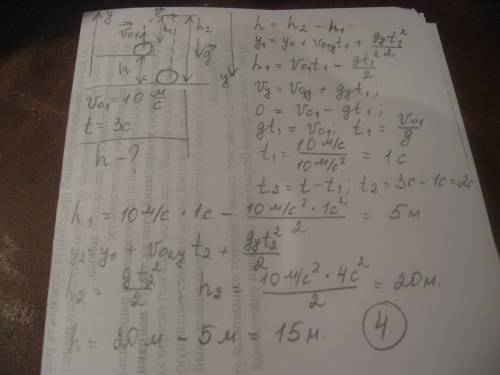 y v⃗ y
v⃗₀₁ h₁ h₂
h g⃗
v₀₁ = 10 м/с
t = 3с
h - ?
h = h₂ - h₁
y₁ = y₀ + v₀₁yt₁ + gyt₁²/2
h₁ = v₀₁t₁ - gt₁²/2
vy = v₀y + gyt₁;
0 = v₀₁ - gt₁;
gt₁ = v₀₁; t₁ = v₀₁/g
t₁ = 10 м/с / 10 м/с² = 1 с
t₂ = t - t₁; t₂ = 3с - 1с = 2с
h₁ = 10м/с · 1с - 10 м/с² · 1с²/2 = 5м
y₂ = y₀ + v₀₂yt₂ + gyt₂²/2
h₂ = gt₂²/2 h₂ = 10м/с² · 4с²/2 = 20м.
h = 20м - 5м = 15м. 4.